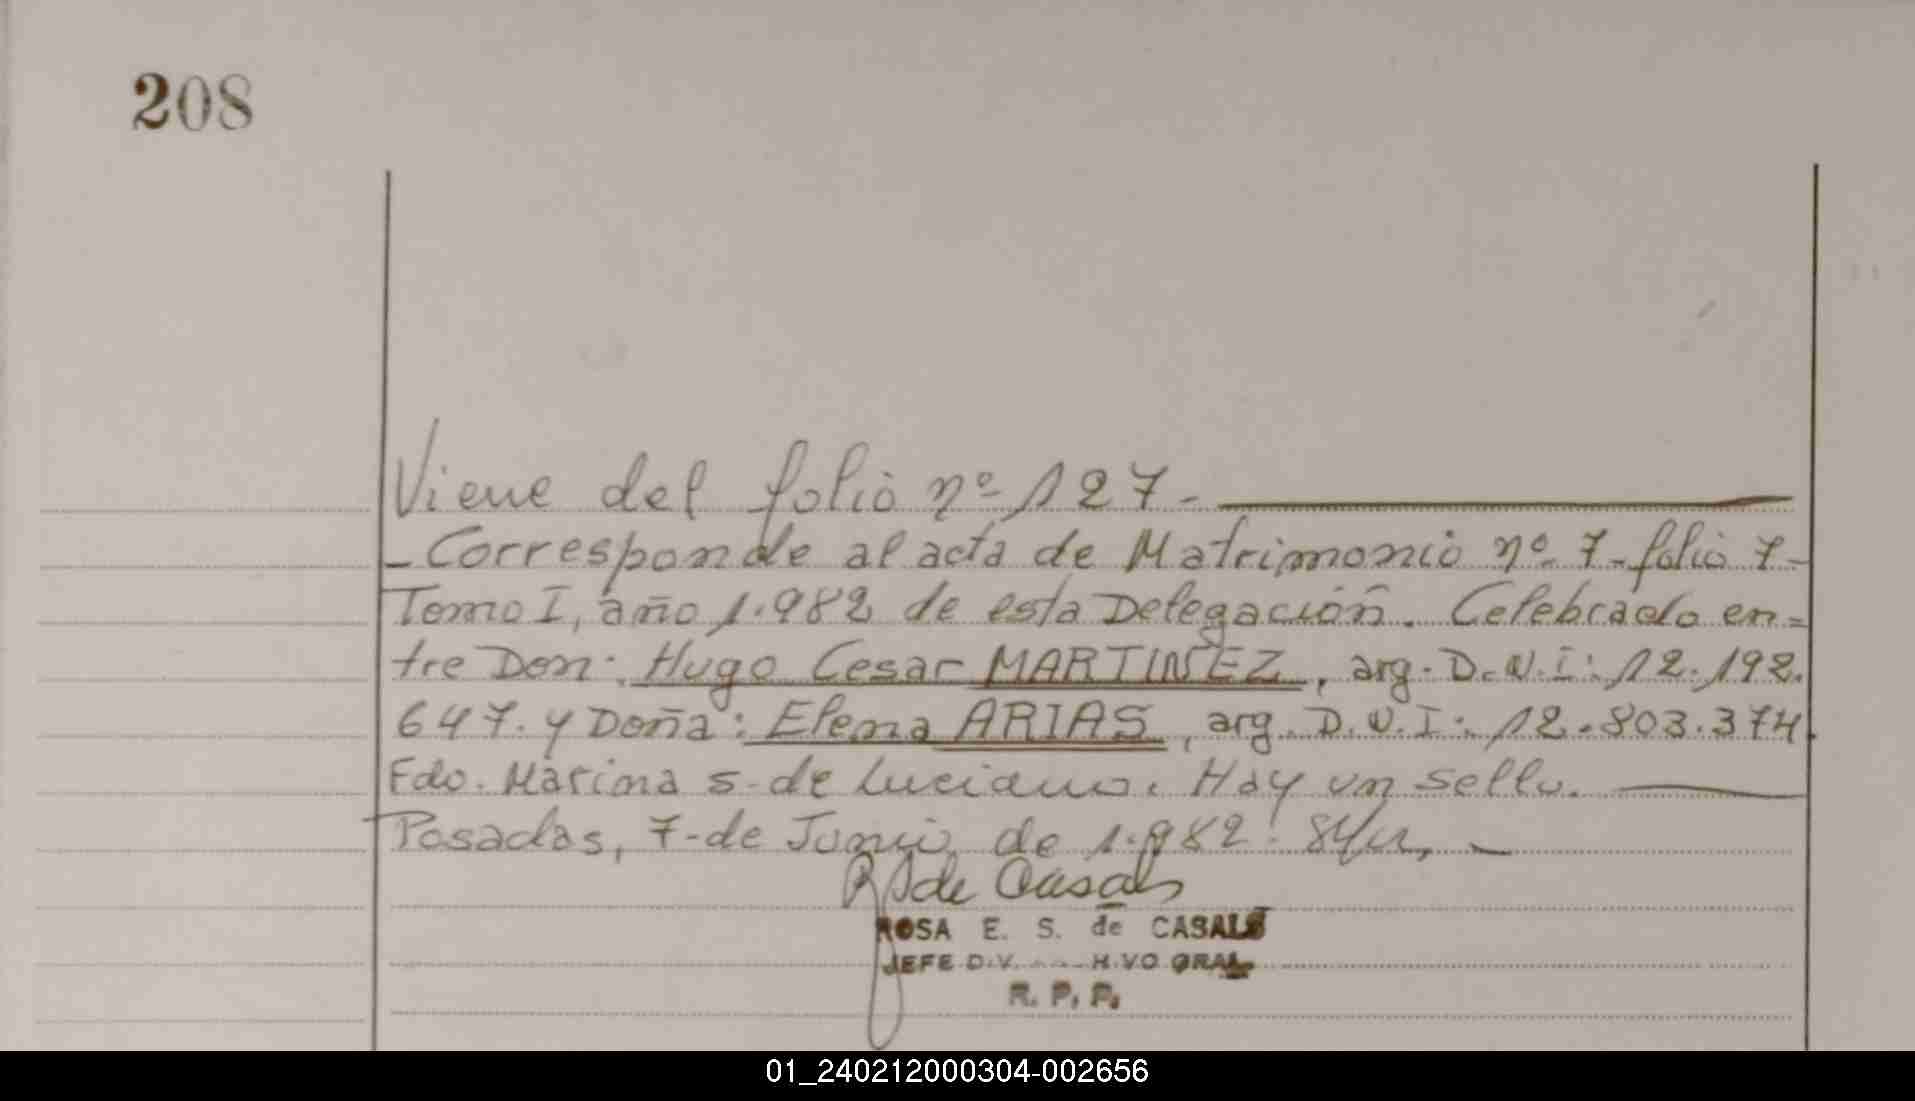 208
Viene del folio nº 127-
- Corresponde al acta de Matrimonio nº 7- folio 7-
Tomo I, año 1.982 de esta Delegación. Celebrado en=
tre Don: Hugo Cesar MARTINEZ, arg. D.N.I: 12.192.
647. y Doña: Elena ARIAS, arg. D.N.I: 12.803.374
Fdo. Marina S. de Luciano. Hay un sello.
Posadas, 7-de Junio de 1.982.
R S de Casals
ROSA E. S. de CASALS
JEFE DIV. H.VO GRAL.
R. P. P.
01_240212000304-002656